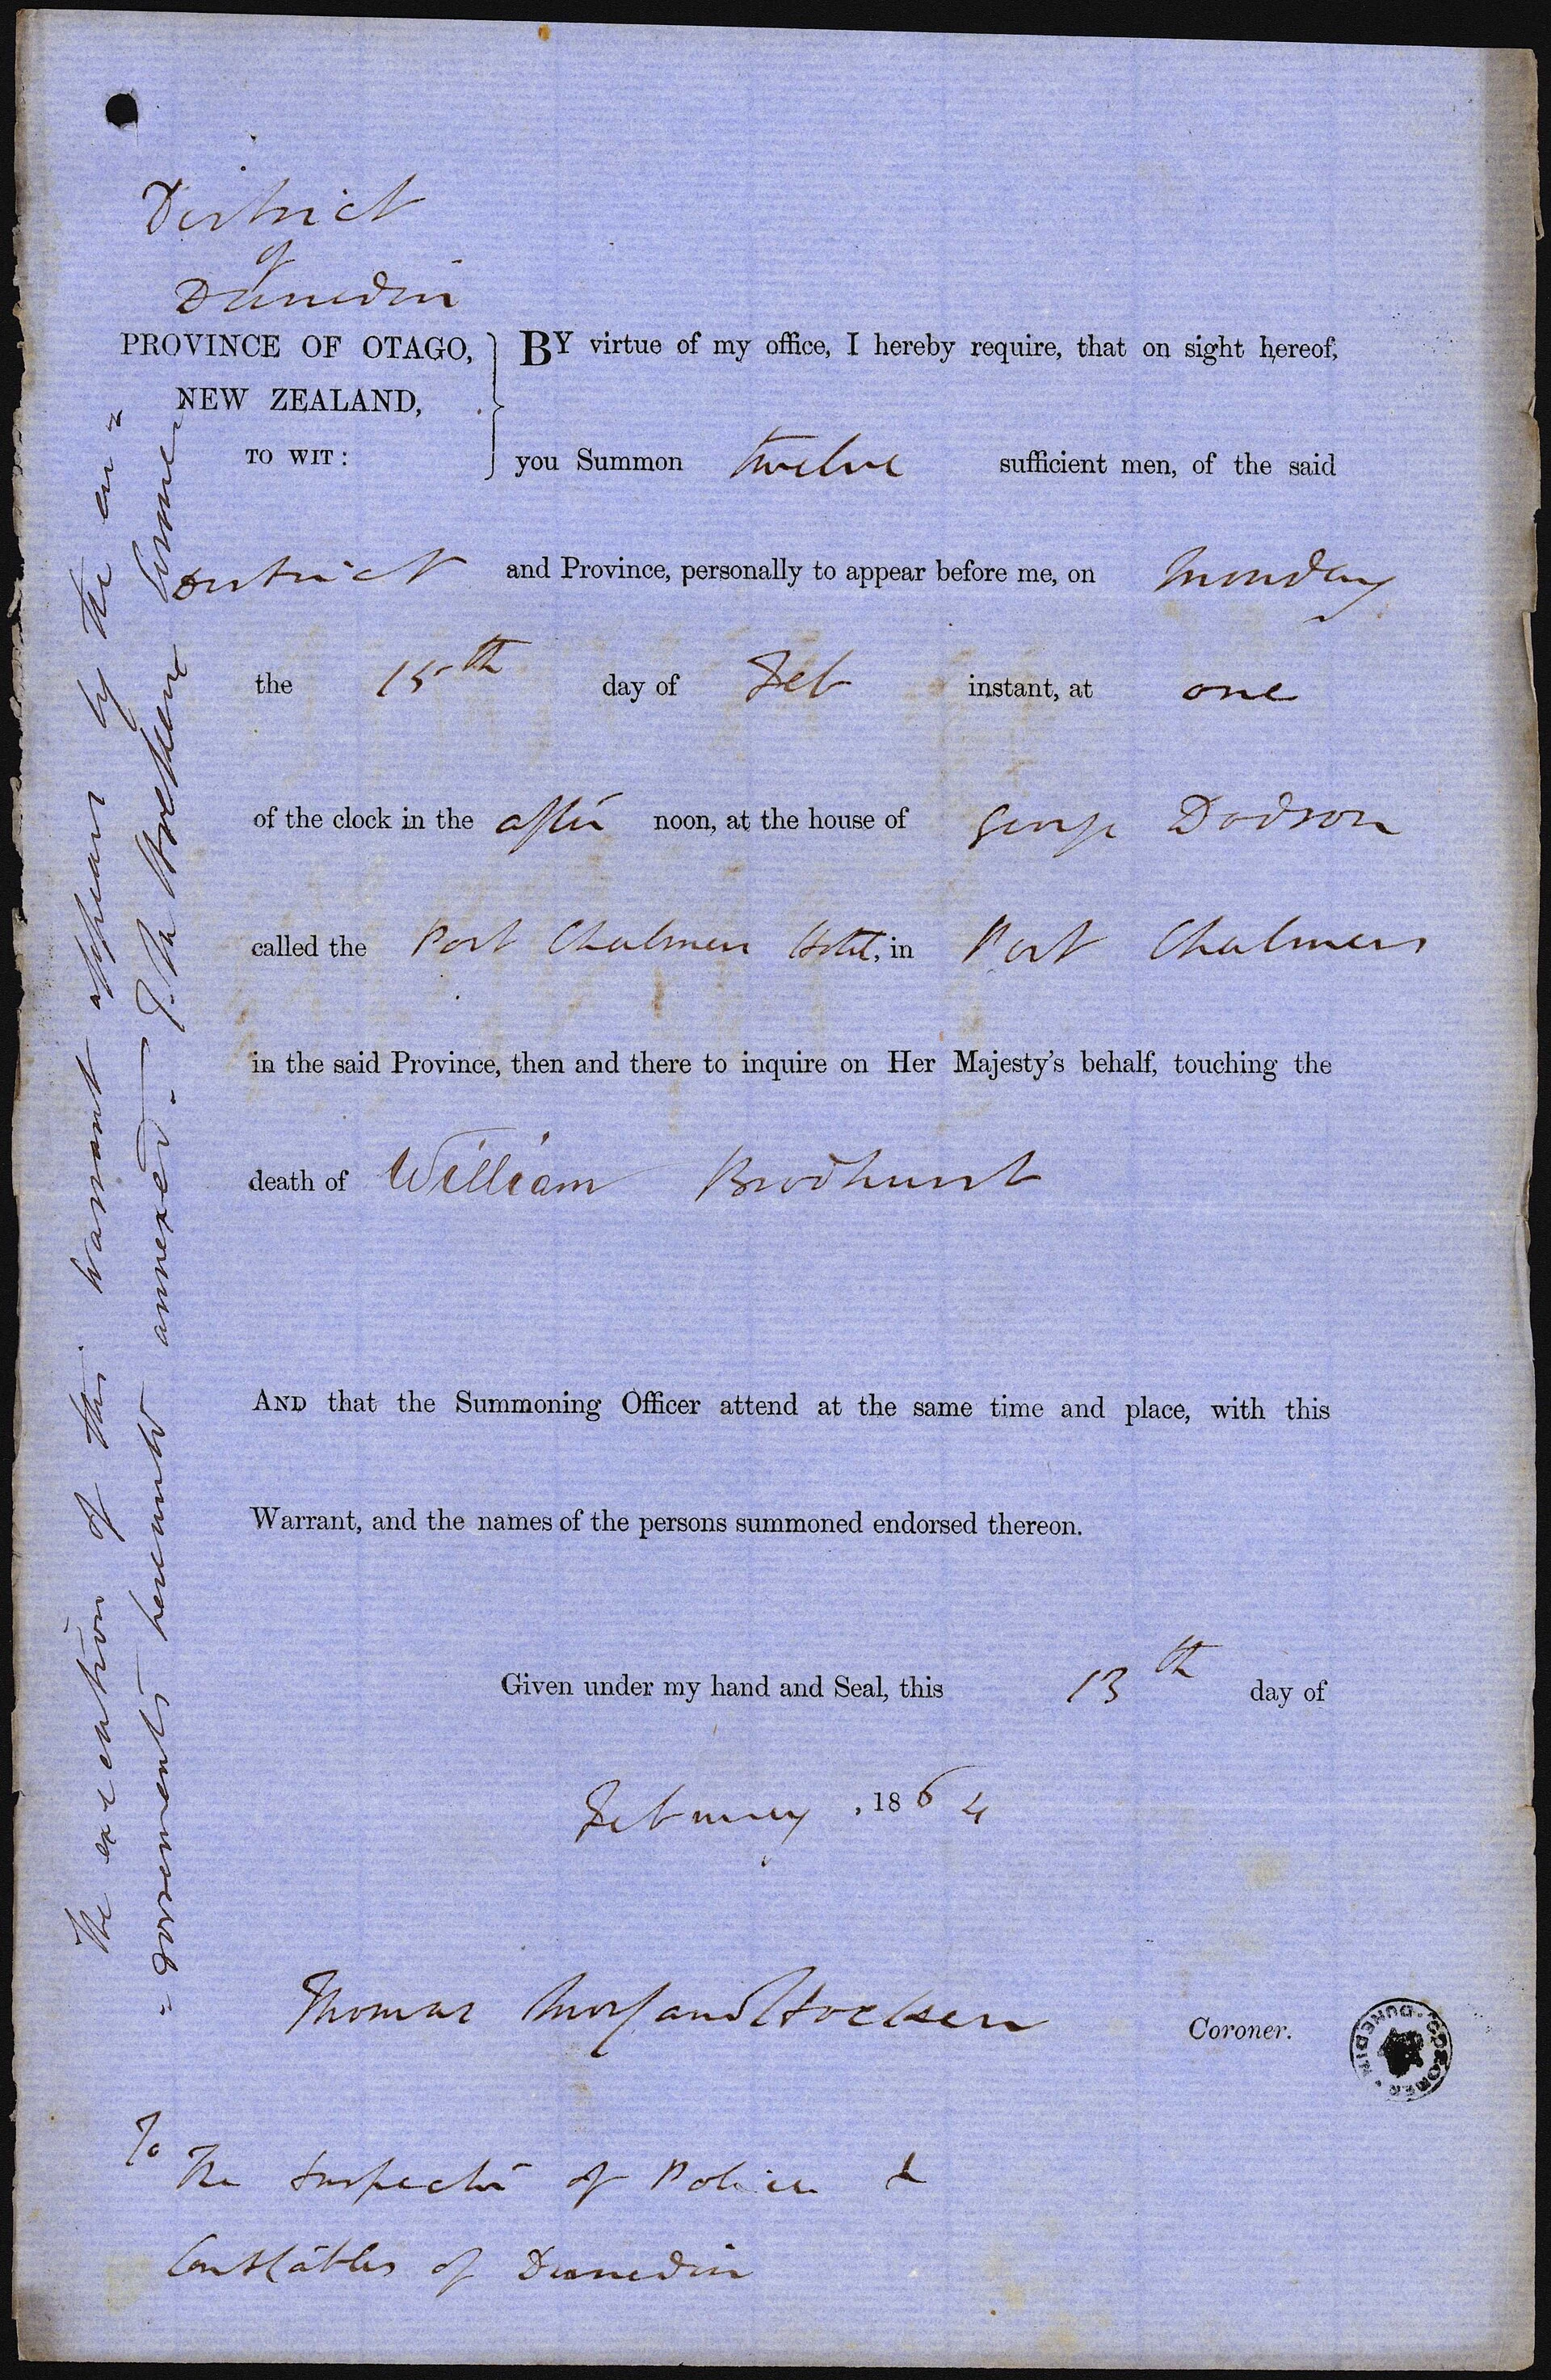 District
of
Dunedin
PROVINCE OF OTAGO,
NEW ZEALAND,
TO WIT:
BY virtue of my office, I hereby require, that on sight hereof,
you Summon twelve sufficient men, of the said
District and Province, personally to appear before me, on Monday
the 15th day of Feb instant, at one
of the clock in the after noon, at the house of George Dodson
called the Port Chalmers Hotel, in Port Chalmers
in the said Province, then and there to inquire on Her Majesty's behalf, touching the
death of William Brodhurst
AND that the Summoning Officer attend at the same time and place, with this
Warrant, and the names of the persons summoned endorsed thereon.
Given under my hand and Seal, this 13th day of
February, 1864
Thomas Morland Hocken Coroner.
CORONER. DUNEDIN.
To
The Inspector of Police &
Constables of Dunedin
The execution of this warrant appears by the en=
=dorsements hereunto annexed. —